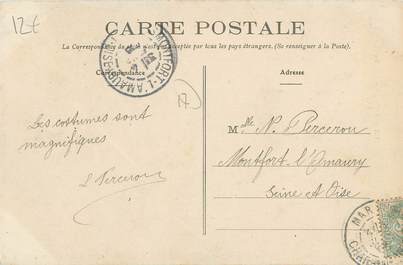 12€
CARTE POSTALE
La Correspondance au recto n'est pas acceptée par tous les pays étrangers. (Se renseigner à la Poste).
Correspondance
Adresse
MONTFORT-L'AMAURY
17
Les costumes sont
magnifiques
Mlle N. Perceron
Montfort l'Amaury
Seine et Oise
MAR